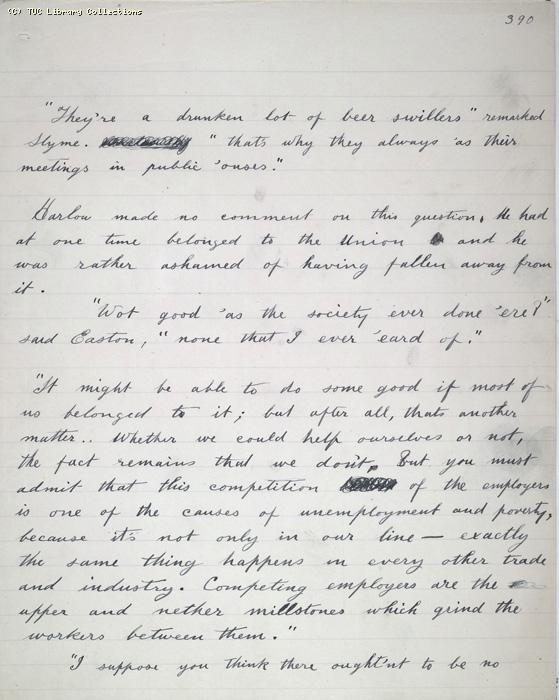 (C) TUC Library Collections
390
"They're a drunken lot of beer swillers" remarked
Slyme. "thats why they always 'as their
meetings in public 'ouses."
Harlow made no comment on this question. He had
at one time belonged to the Union and he
was rather ashamed of having fallen away from
it.
"Wot good 'as the society ever done 'ere?"
said Easton, "none that I ever 'eard of."
"It might be able to do some good if most of
us belonged to it; but after all, thats another
matter.. Whether we could help ourselves or not,
the fact remains that we don't. But you must
admit that this competition of the employers
is one of the causes of unemployment and poverty,
because it's not only in our line – exactly
the same thing happens in every other trade
and industry. Competing employers are the
upper and nether millstones which grind the
workers between them."
"I suppose you think there ought'nt to be no